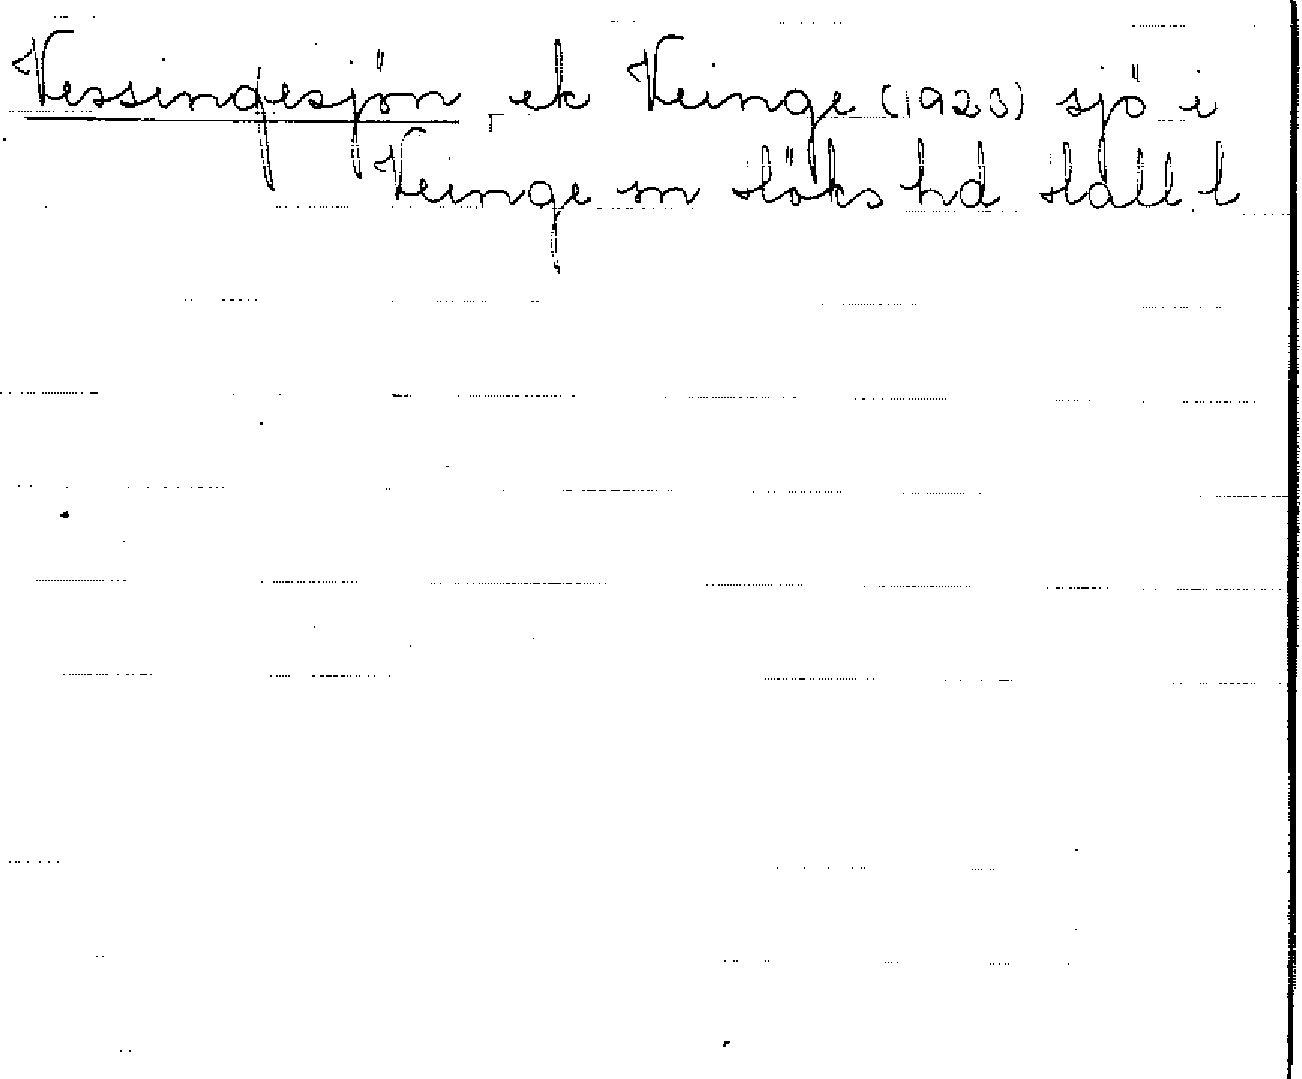 Vessingesjön ek Veinge (1923) sjö i
Veinge sn Höks hd Hall l